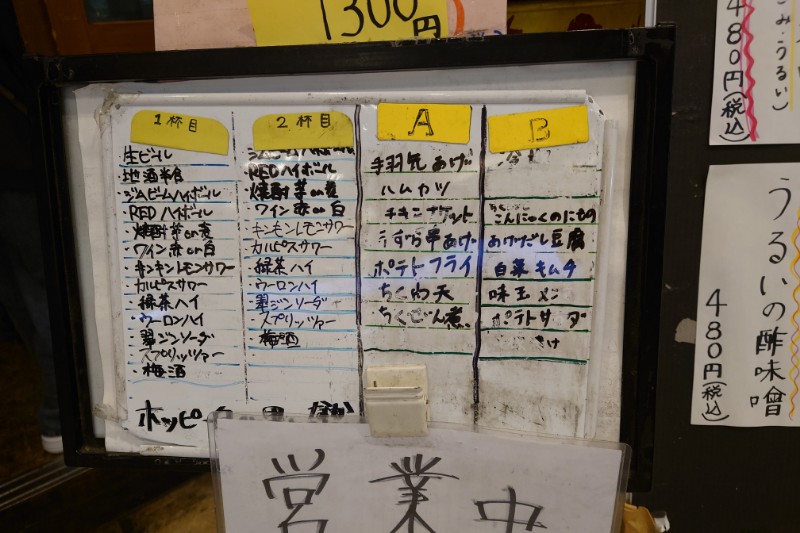 1300円
1杯目
生ビール
地酒半合
ジムビームハイボール
・REDハイボール
・焼酎芋or麦
・ワイン赤or白
・キンキンレモンサワー
カルピスサワー
・緑茶ハイ
・ウーロンハイ
・翠ジンソーダ
・スプリッツァー
・梅酒
2杯目
・REDハイボール
・焼酎芋or麦
・ワイン赤or白
キンキンレモンサワー
カルピスサワー
・緑茶ハイ
・ウーロンハイ
・翠ジンソーダ
・スプリッツァー
・梅酒
ホッピー
A
手羽先あげ
ハムカツ
チキンナゲット
うずら串あげ
ポテトフライ
ちくわ天
ちくぜん煮
B
こんにゃくのにもの
あげだし豆腐
白菜キムチ
味玉
ポテトサラダ
営業中
480円(税込)
うるい
うるいの酢味噌
480円(税込)